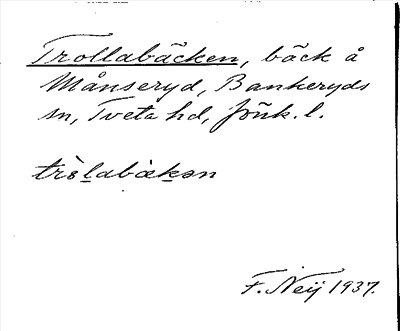 Trollabäcken, bäck å
Månseryd, Bankeryds
sn, Tveta hd, Jönk. l.
tròlabäkən
F. Neij 1937.